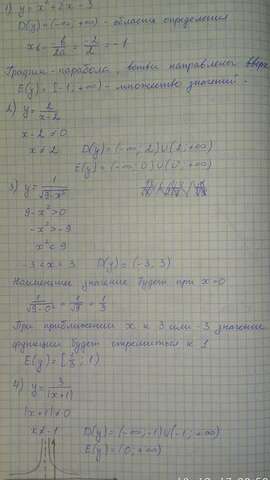 1) y = x² + 2x - 3
D(y) = (-∞; +∞) - область определения
x₆ = -b/2a = -2/2 = -1
График - парабола, ветви направлены вверх
E(y) = [-1, +∞) - множество значений.
2) y = 2/(x-2)
x - 2 ≠ 0
x ≠ 2 D(y) = (-∞; 2) U (2; +∞)
E(y) = (-∞; 0) U (0; +∞)
3) y = 1/√(9-x²)
9 - x² > 0
-x² > -9
x² < 9
-3 < x < 3 D(y) = (-3; 3)
Наименьшее значение будет при x=0
1/√(9-0²) = 1/√9 = 1/3
При приближении x к 3 или -3 значение
функции будет стремиться к 1
E(y) = [1/3; 1)
4) y = 3/|x+1|
|x+1| ≠ 0
x ≠ -1 D(y) = (-∞; -1) U (-1; +∞)
E(y) = (0; +∞)